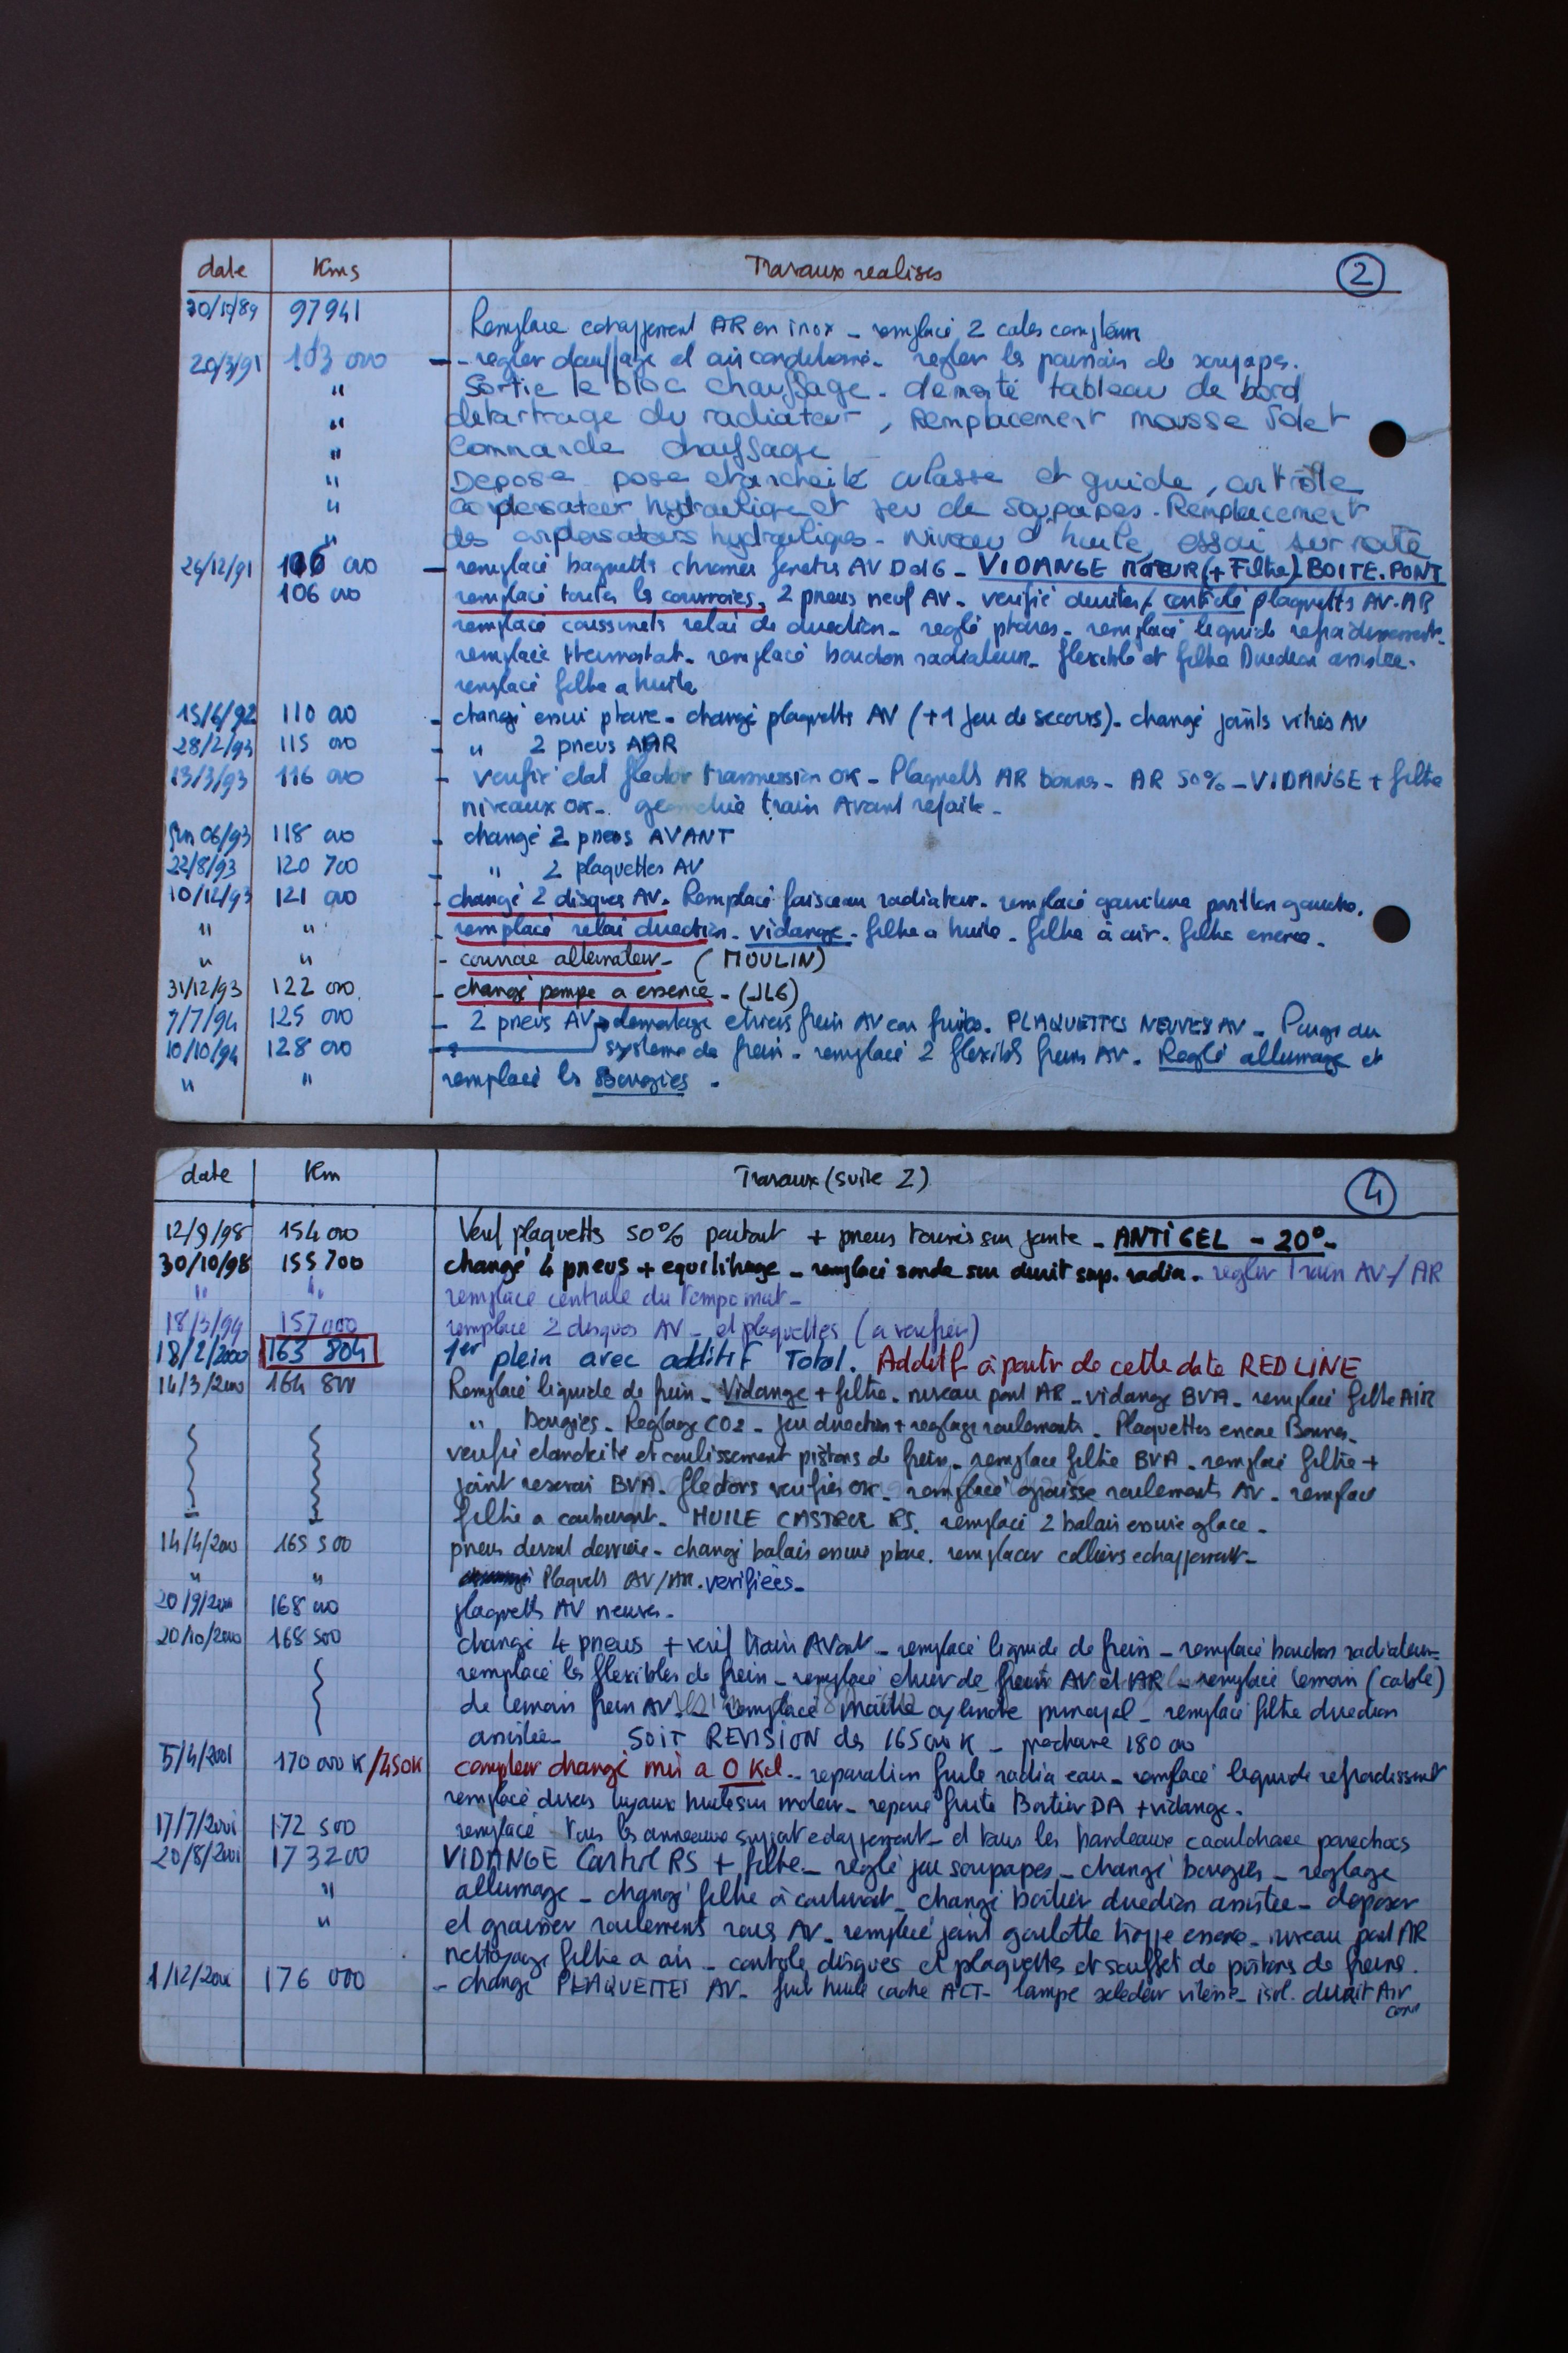 date Kms Travaux realises 2
97941 Remplace echappement AR en inox - remplacé 2 cales compteur
20/3/91 103 000 - regler chauffage et air conditionné. regler les poussoirs de soupapes.
" Sortie le bloc chauffage. demonté tableau de bord
" détartrage du radiateur, Remplacement mousse Volet
" Commande chauffage
" Depose pose etancheité culasse et guide, contrôle
" compensateur hydraulique et jeu de soupapes. Remplacement
" des compensateurs hydrauliques - Niveau d'huile, essai sur route
26/12/91 106 000 - remplacé baguettes chromées fenetres AV D et G - VIDANGE MOTEUR (+ Filtre) - BOITE. PONT
106 000 remplacé toutes les courroies, 2 pneus neuf AV - verifié durites / contrôlé plaquettes AV-AR
remplacé coussinets relai de direction - reglé phares - remplacé liquide refroidissement-
remplacé thermostat - remplacé bouchon radiateur - flexible et filtre Direction assistée -
remplacé filtre a huile
15/6/92 110 000 - changé essui phare - changé plaquettes AV (+1 jeu de secours) - changé joints vitres AV
28/2/93 115 000 - " 2 pneus AR
13/3/93 116 000 - verifié etat flector transmission OK - Plaquetts AR bonnes - AR 50% - VIDANGE + filtre
niveaux OK - geometrie train Avant refaite -
06/93 118 000 - changé 2 pneus AVANT
22/8/93 120 700 - " 2 plaquettes AV
10/12/93 121 000 - changé 2 disques AV. Remplacé faisceau radiateur - remplacé garniture pavillon gauche.
" " - remplacé relai direction - vidange - filtre a huile - filtre à air - filtre essence -
" " - courroie alternateur - (MOULIN)
31/12/93 122 000 - changé pompe a essence - (JLG)
7/7/94 125 000 - 2 pneus AV demontage etriers frein AV car fuites. PLAQUETTES NEUVES AV - Purge du
10/10/94 128 000 système de frein - remplacé 2 flexibles freins AV - Reglé allumage et
" " remplacé les Bougies -
date Km Travaux (suite 2) 4
12/9/98 154 000 Verif plaquetts 50% partout + pneus tournés sur jante - ANTIGEL - 20° -
30/10/98 155 700 changé 4 pneus + equilibrage - remplacé sonde sur durit sup. radia - regler Train AV / AR
" " remplacé centrale du Tempomat -
18/3/99 157 000 remplacé 2 disques AV - et plaquettes (a verifier)
18/2/2000 163 804 1er plein avec additif Total. Additif à partir de cette date REDLINE
14/3/2000 164 800 Remplacé liquide de frein - Vidange + filtre - niveau pont AR - vidange BVA - remplacé filtre AIR
" Bougies - Reglage CO2 - jeu direction + reglage roulements - Plaquettes encore Bonnes -
verifié etancheité et coulissement pistons de frein - remplacé filtre BVA - remplacé filtre +
joint reservoir BVA - flectors verifiés OK - remplacé graisse roulements AV - remplacé
filtre a carburant - HUILE CASTROL RS. remplacé 2 balais essuie glace -
14/4/2000 165 500 pneus devant derriere - changé balais essuie phare. remplacer colliers echappement -
" " Plaquetts AV/AR. verifiées -
20/9/2000 168 000 plaquetts AV neuves -
20/10/2000 168 500 changé 4 pneus + verif train AVant - remplacé liquide de frein - remplacé bouchon radiateur -
remplacé les flexibles de frein - remplacé etrier de frein AV et AR - remplacé temoin (cable)
de temoin frein AV - remplacé maitre cylindre principal - remplacé filtre direction
assistée - SOIT REVISION des 165 000 K - prochaine 180 000
5/4/2001 170 000 K/450K compteur changé mis a 0 Kil - reparation fuite radia eau - remplacé liquide refroidissent
remplacé divers tuyaux huile sur moteur - reparé fuite Boitier DA + vidange -
17/7/2001 172 500 remplacé tous les anneaux support echappement - et tous les bandeaux caoutchouc parechocs
20/8/2001 173200 VIDANGE Castrol RS + filtre - reglé jeu soupapes - changé bougies - reglage
" allumage - changé filtre à carburant - changé boitier direction assistée - deposer
" et graisser roulements roues AV - remplacé joint goulotte trappe essence - niveau pont AR
nettoyage filtre a air - controle disques et plaquettes et soufflet de pistons de freins.
1/12/2001 176 000 - changé PLAQUETTES AV - fuite huile cache ACT - lampe selecteur vitesse - isol. durit Air
cond